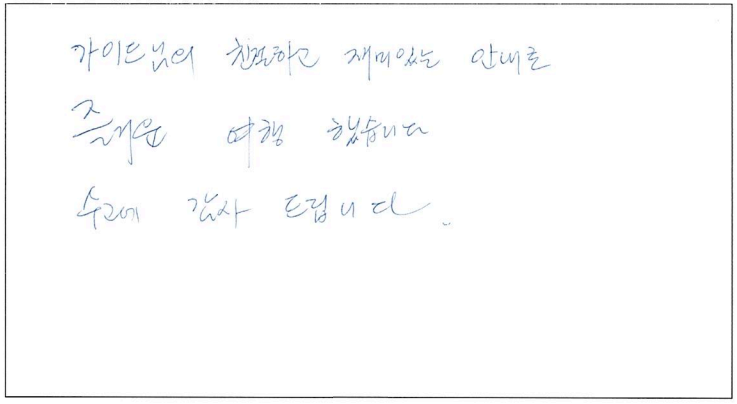 가이드님의 친절하고 재미있는 안내로
즐거운 여행 했습니다
수고에 감사 드립니다